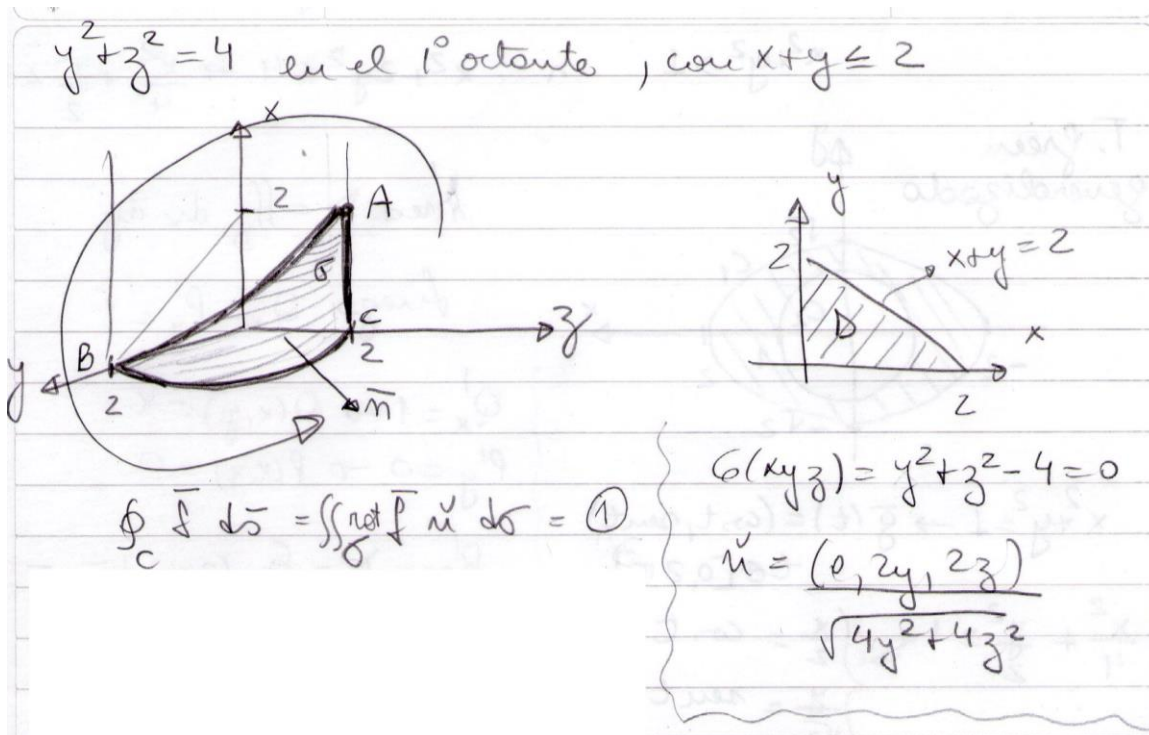 y² + z² = 4 en el 1° octante, con x+y ≤ 2
x
2
A
σ
C
2
z
B
2
y
n̄
y
2
x+y = 2
D
x
2
∮_C f̄ ds̄ = ∬_σ rot f̄ ň dσ = ①
G(xyz) = y² + z² - 4 = 0
ň = (0, 2y, 2z) / √(4y² + 4z²)